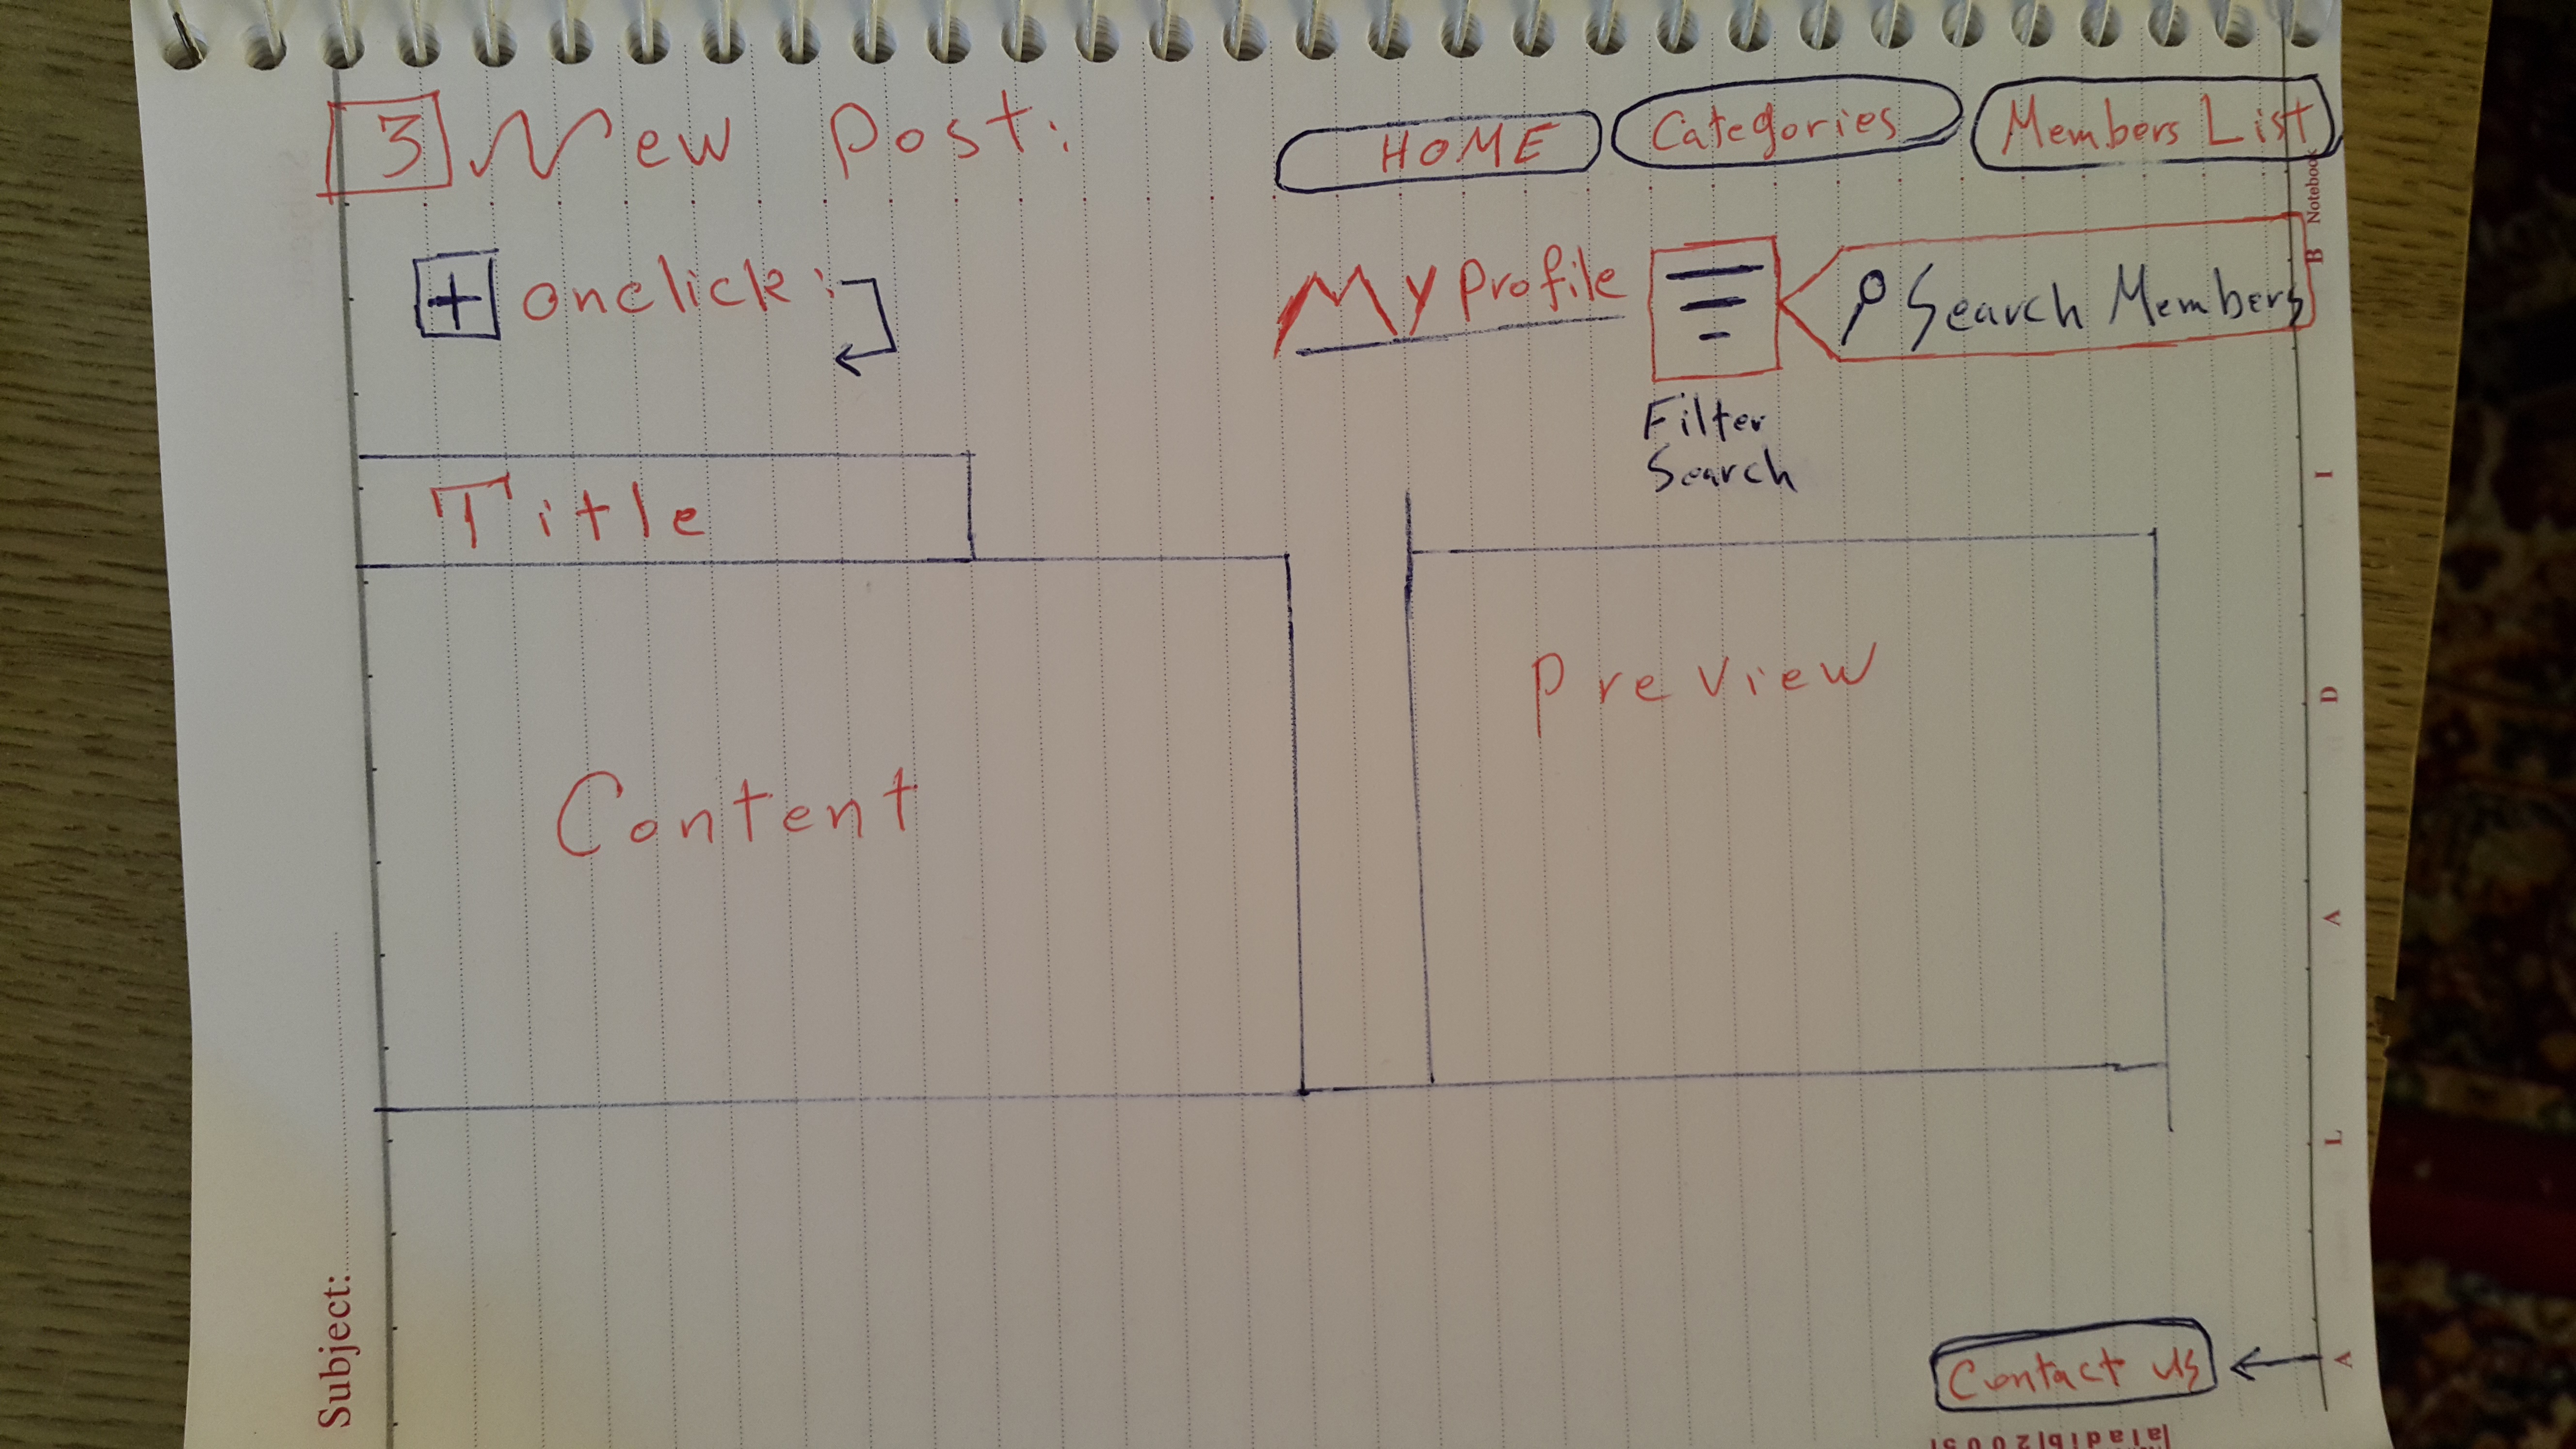 3 New Post:
HOME
Categories
Members List
+ onclick:
My Profile
Search Members
Filter
Search
Title
Preview
Content
Contact us
Subject:
Notebook
B
I
D
A
L
A